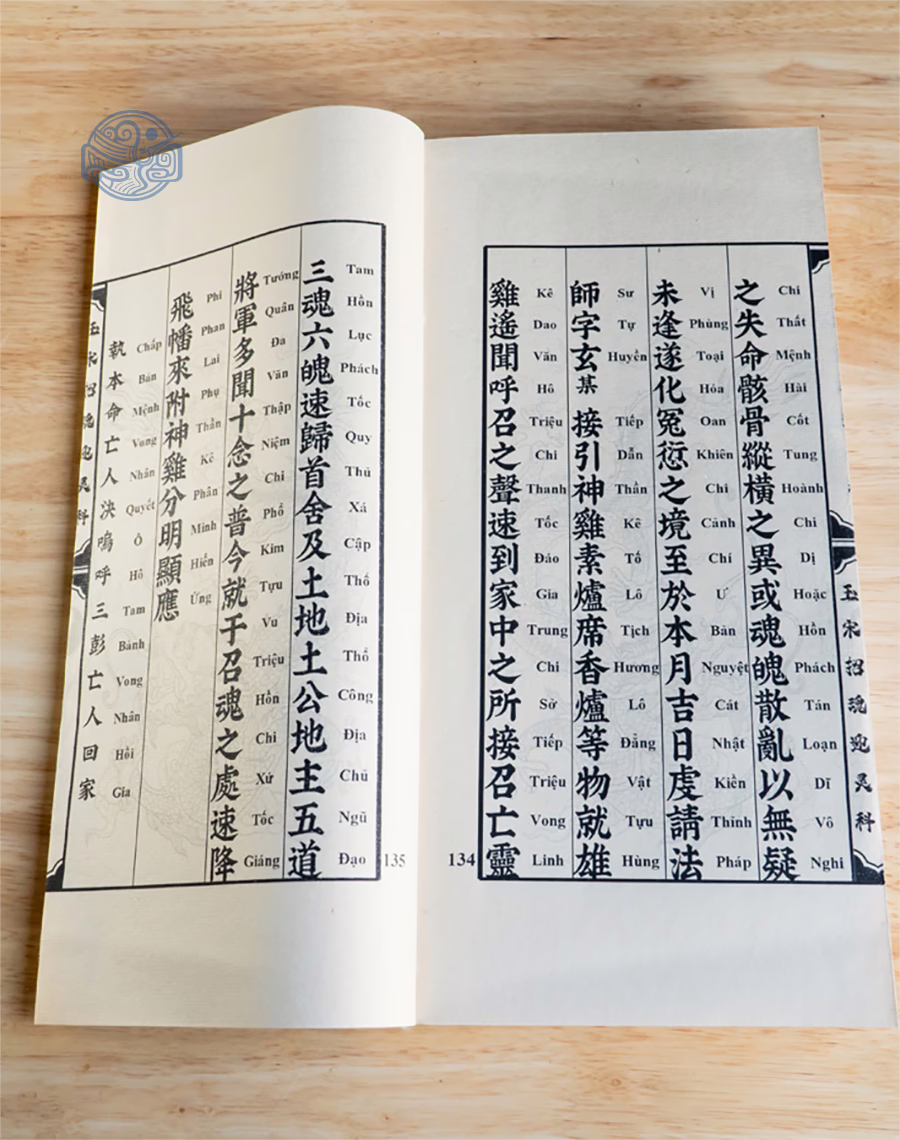 之失命骸骨縱橫之異或魂魄散亂以無疑
Chi Thất Mệnh Hài Cốt Tung Hoành Chi Dị Hoặc Hồn Phách Tán Loạn Dĩ Vô Nghi
未逢遂化冤愆之境至於本月吉日虔請法
Vị Phùng Toại Hóa Oan Khiên Chi Cảnh Chí Ư Bản Nguyệt Cát Nhật Kiền Thỉnh Pháp
師字玄某接引神雞素爐席香爐等物就雄
Sư Tự Huyền Tiếp Dẫn Thần Kê Tố Lô Tịch Hương Lô Đẳng Vật Tựu Hùng
雞遙聞呼召之聲速到家中之所接召亡靈
Kê Dao Văn Hô Triệu Chi Thanh Tốc Đáo Gia Trung Chi Sở Tiếp Triệu Vong Linh
134
三魂六魄速歸首舍及土地土公地主五道
Tam Hồn Lục Phách Tốc Quy Thủ Xá Cập Thổ Địa Thổ Công Địa Chủ Ngũ Đạo
將軍多聞十念之普今就于召魂之處速降
Tướng Quân Đa Văn Thập Niệm Chi Phổ Kim Tựu Vu Triệu Hồn Chi Xứ Tốc Giáng
飛幡來附神雞分明顯應
Phi Phan Lai Phụ Thần Kê Phân Minh Hiển Ứng
執本命亡人决嗚呼三彭亡人回家
Chấp Bản Mệnh Vong Nhân Quyết Ô Hô Tam Bành Vong Nhân Hồi Gia
135